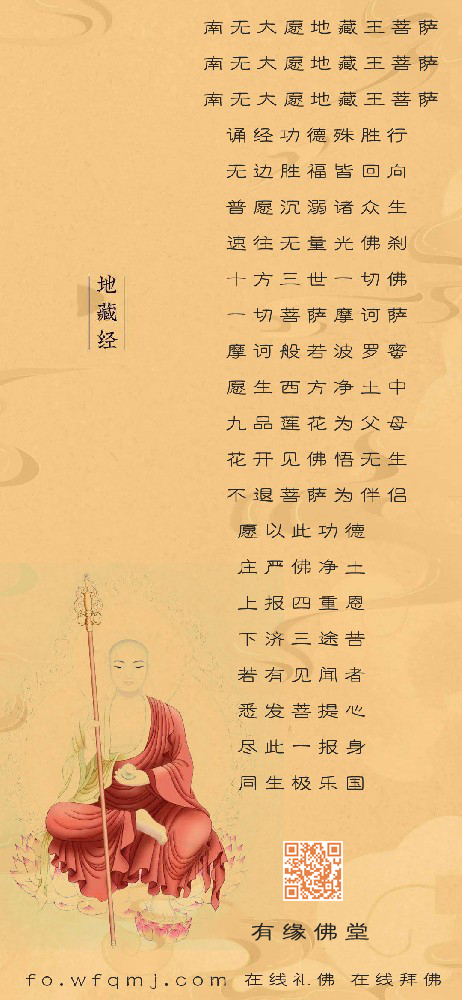 南无大愿地藏王菩萨
南无大愿地藏王菩萨
南无大愿地藏王菩萨
诵经功德殊胜行
无边胜福皆回向
普愿沉溺诸众生
速往无量光佛刹
十方三世一切佛
一切菩萨摩诃萨
摩诃般若波罗密
愿生西方净土中
九品莲花为父母
花开见佛悟无生
不退菩萨为伴侣
愿以此功德
庄严佛净土
上报四重恩
下济三途苦
若有见闻者
悉发菩提心
尽此一报身
同生极乐国
地藏经
有缘佛堂
fo.wfqmj.com 在线礼佛 在线拜佛